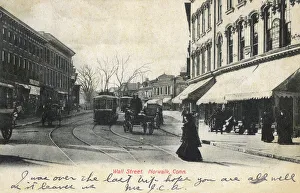 Wall Street, Norwalk, Conn.
I was over the last trip hope you are all well
as it leaves me